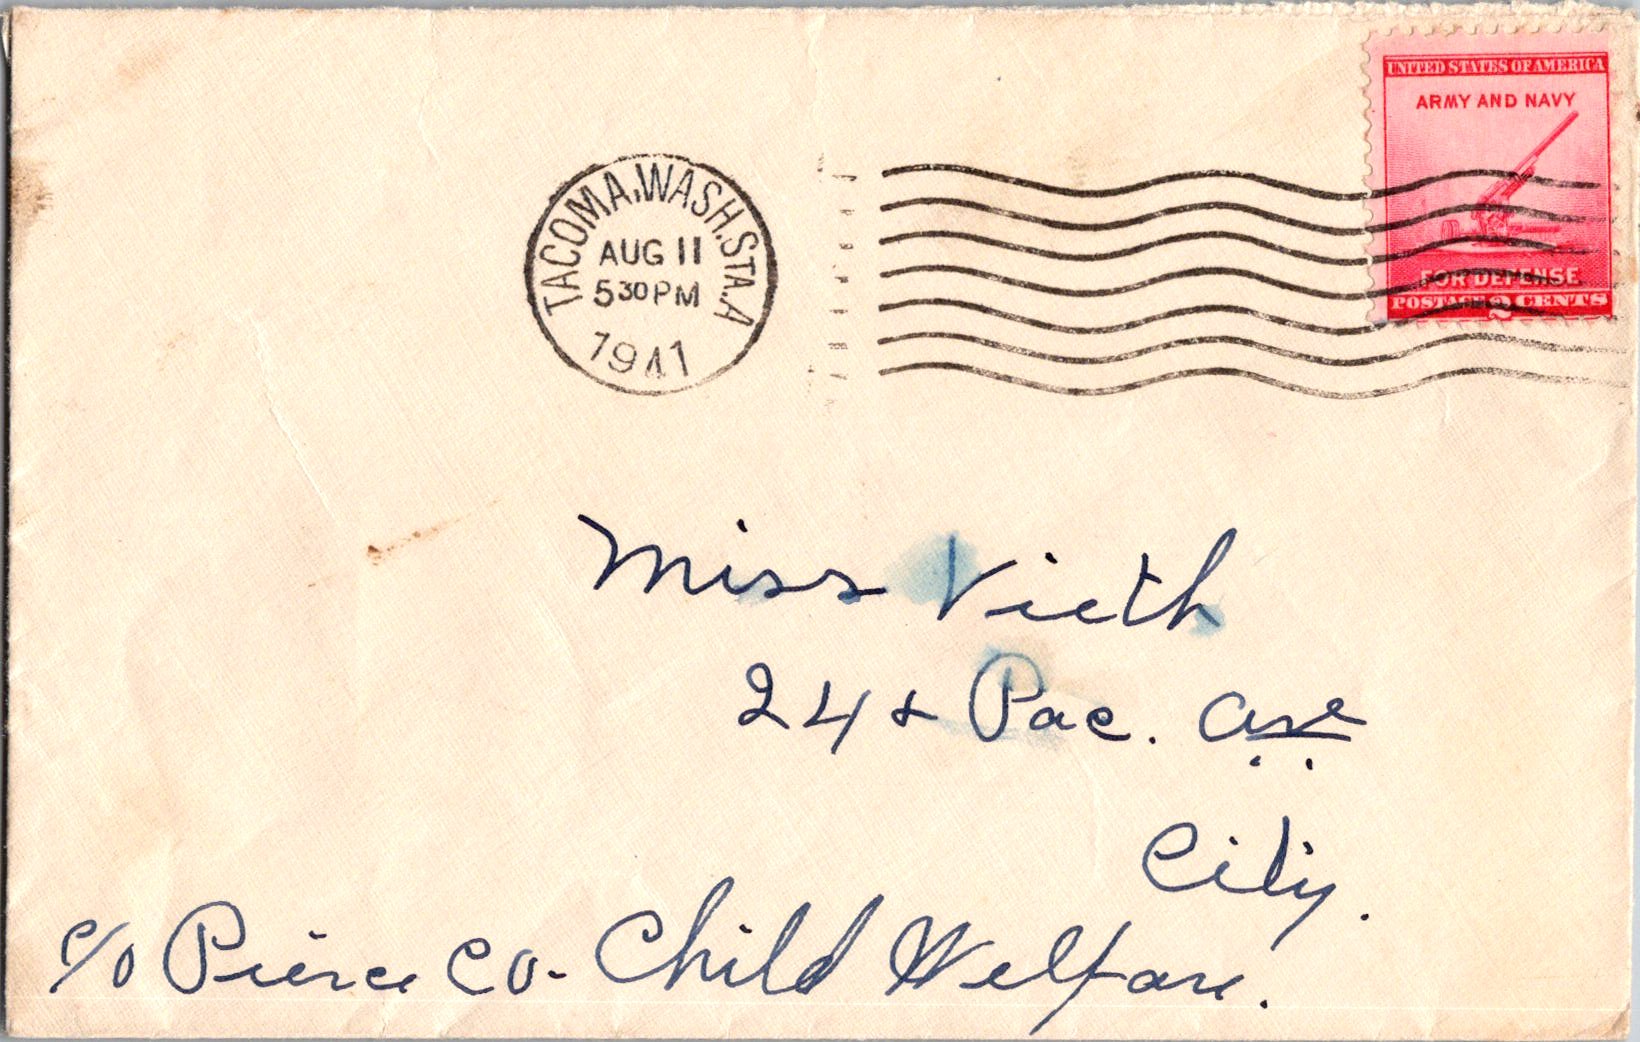 UNITED STATES OF AMERICA
ARMY AND NAVY
FOR DEFENSE
POSTAGE 2 CENTS
TACOMA, WASH. STA. A
AUG 11
5 30 PM
1941
Miss Vieth
24 & Pac. Ave
City.
c/o Pierce Co - Child Welfare.